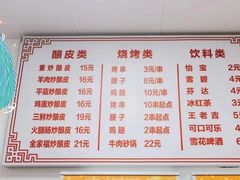 酿皮类 烧烤类 饮料类
素炒酿皮 15元 烤串 3元/串 怡宝 2元
羊肉炒酿皮 16元 腰子 8元/串 雪碧
平菇炒酿皮 16元 烤串 10串起点 芬达
鸡蛋炒酿皮 16元 鸡翅 10串起点 冰红茶
三鲜炒酿皮 19元 腰子 2串起点 王老吉
火腿肠炒酿皮 16元 鸡翅 2串起点 可口可乐
全家福炒酿皮 21元 牛肉砂锅 22元 雪花啤酒